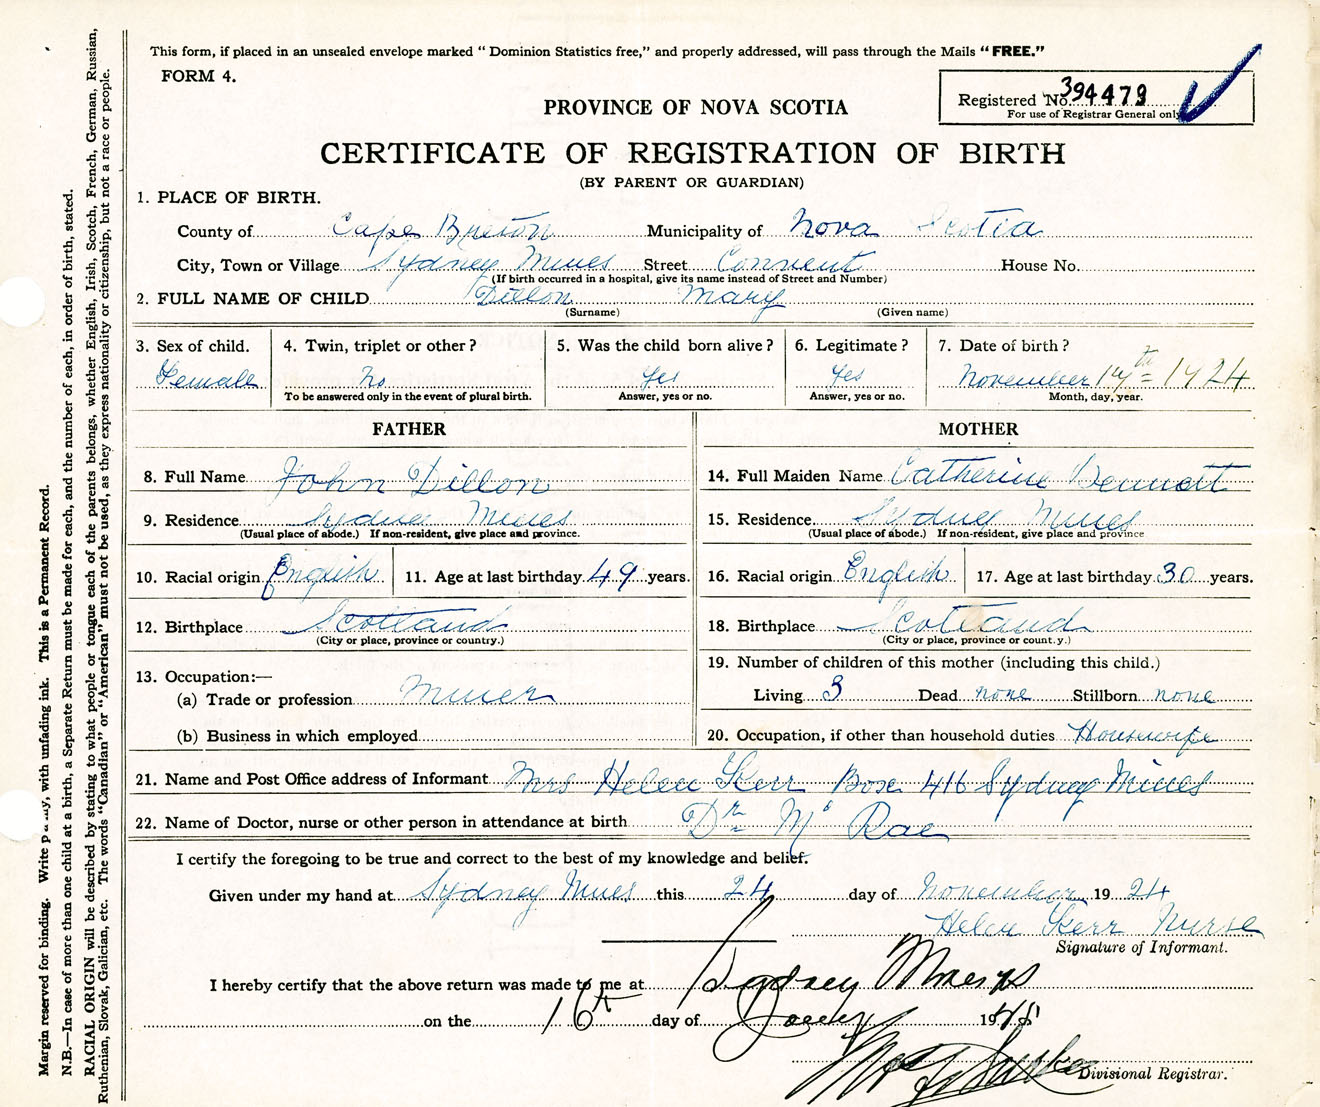 This form, if placed in an unsealed envelope marked “ Dominion Statistics free,” and properly addressed, will pass through the Mails “FREE.”
FORM 4.
Registered No. 394479
For use of Registrar General only
PROVINCE OF NOVA SCOTIA
CERTIFICATE OF REGISTRATION OF BIRTH
(BY PARENT OR GUARDIAN)
1. PLACE OF BIRTH.
County of Cape Breton Municipality of Nova Scotia
City, Town or Village Sydney Mines Street Convent House No.
(If birth occurred in a hospital, give its name instead of Street and Number)
2. FULL NAME OF CHILD Dillon Mary
(Surname) (Given name)
3. Sex of child. 4. Twin, triplet or other? 5. Was the child born alive? 6. Legitimate? 7. Date of birth?
Female No Yes Yes November 1924
To be answered only in the event of plural birth. Answer, yes or no. Answer, yes or no. Month, day, year.
FATHER MOTHER
8. Full Name John Dillon 14. Full Maiden Name Catherine Bennett
9. Residence Sydney Mines 15. Residence Sydney Mines
(Usual place of abode.) If non-resident, give place and province. (Usual place of abode.) If non-resident, give place and province
10. Racial origin English 11. Age at last birthday 49 years. 16. Racial origin English 17. Age at last birthday 30 years.
12. Birthplace Scotland 18. Birthplace Scotland
(City or place, province or country.) (City or place, province or count.y.)
13. Occupation:— 19. Number of children of this mother (including this child.)
(a) Trade or profession Miner Living 3 Dead none Stillborn none
(b) Business in which employed 20. Occupation, if other than household duties Housewife
21. Name and Post Office address of Informant Mrs Helen Kerr Box 416 Sydney Mines
22. Name of Doctor, nurse or other person in attendance at birth Dr Mc Rae
I certify the foregoing to be true and correct to the best of my knowledge and belief.
Given under my hand at Sydney Mines this 24 day of November 19 24
Helen Kerr Nurse
Signature of Informant.
I hereby certify that the above return was made to me at Sydney Mines
on the 16th day of 19
Divisional Registrar.
Margin reserved for binding. Write with unfading ink. This is a Permanent Record.
N.B.—In case of more than one child at a birth, a Separate Return must be made for each, and the number of each, in order of birth, stated.
RACIAL ORIGIN will be described by stating to what people or tongue each of the parents belongs, whether English, Irish, Scotch, French, German, Russian,
Ruthenian, Slovak, Galician, etc. The words “Canadian” or “American” must not be used, as they express nationality or citizenship, but not a race or people.